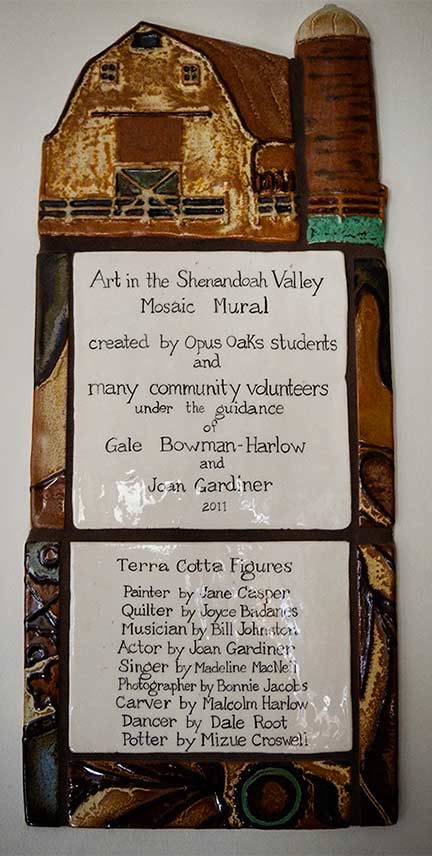 Art in the Shenandoah Valley
Mosaic Mural
created by Opus Oaks students
and
many community volunteers
under the guidance
of
Gale Bowman-Harlow
and
Joan Gardiner
2011
Terra Cotta Figures
Painter by Jane Casper
Quilter by Joyce Badanes
Musician by Bill Johnston
Actor by Joan Gardiner
Singer by Madeline MacNeil
Photographer by Bonnie Jacobs
Carver by Malcolm Harlow
Dancer by Dale Root
Potter by Mizue Croswell